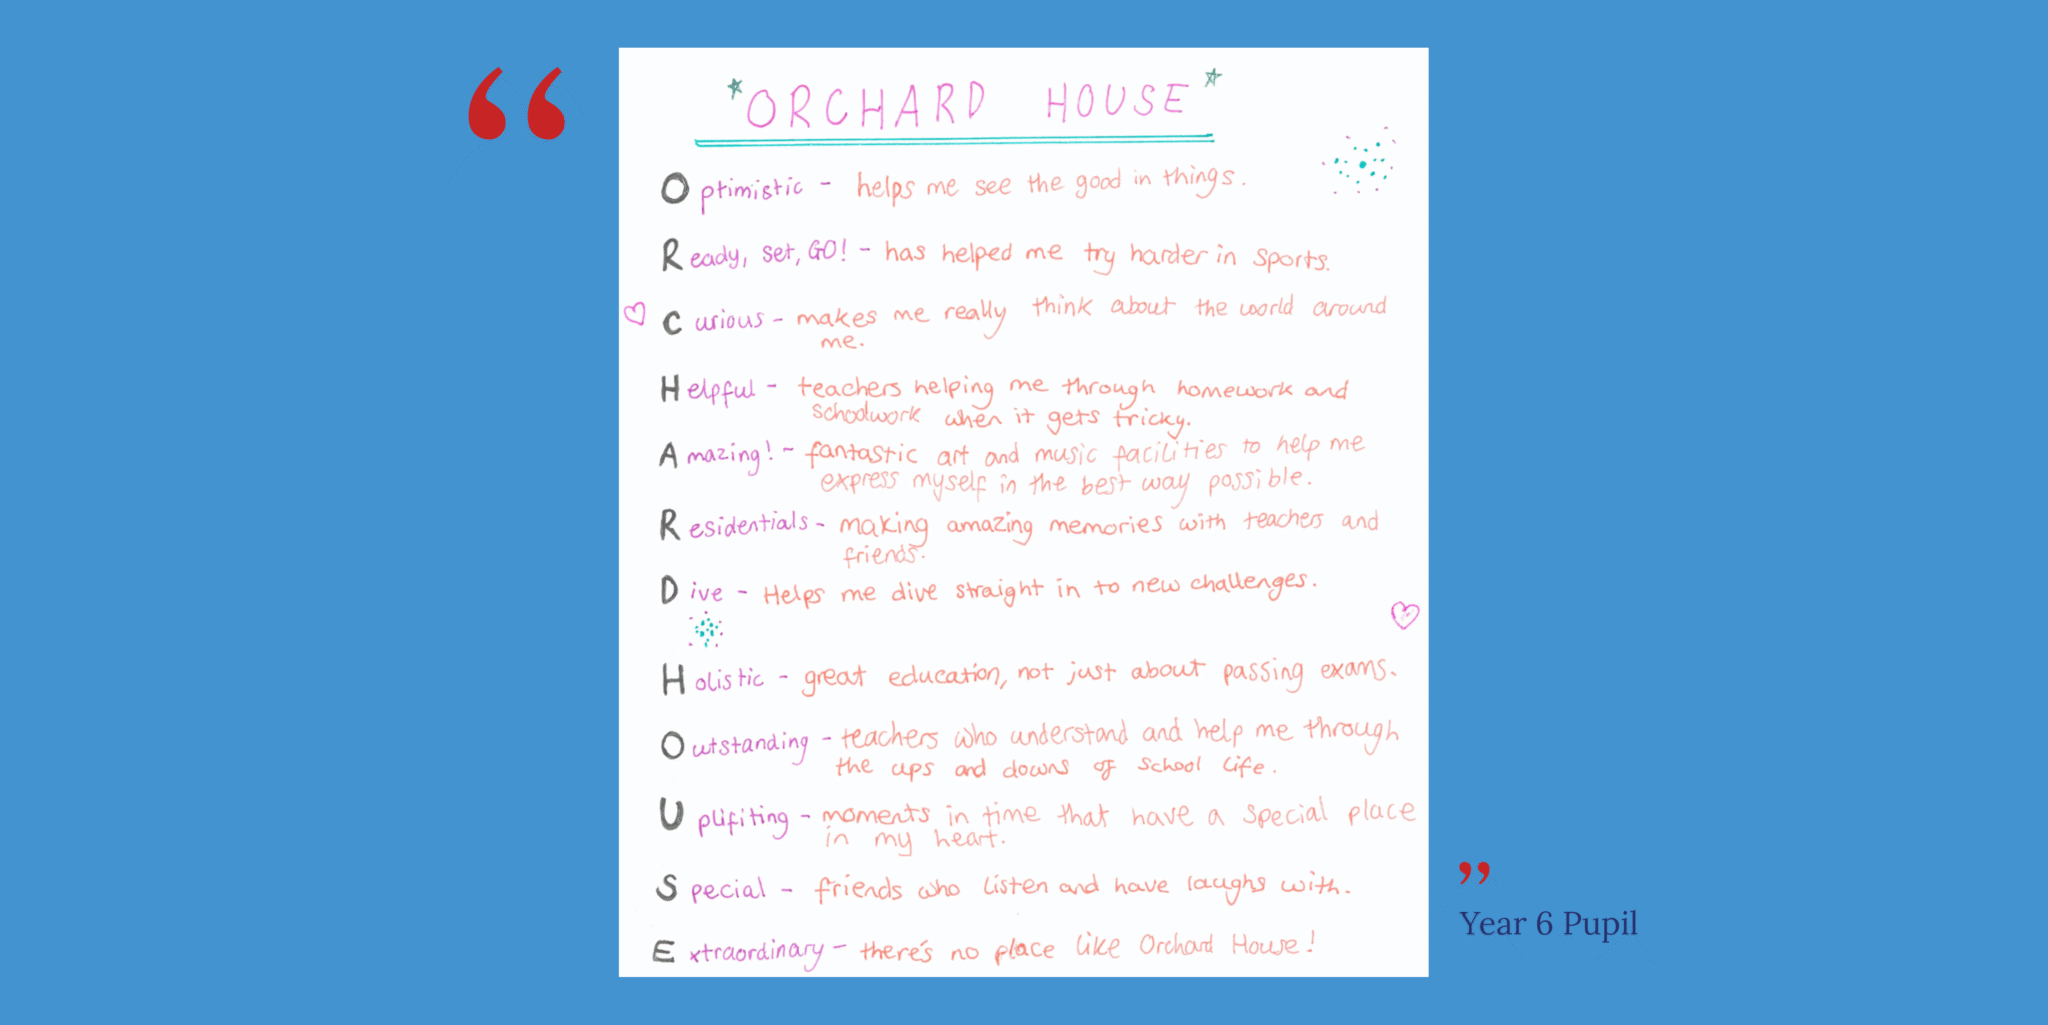 “
*ORCHARD HOUSE*
Optimistic - helps me see the good in things.
Ready, set, GO! - has helped me try harder in sports.
Curious - makes me really think about the world around
me.
Helpful - teachers helping me through homework and
schoolwork when it gets tricky.
Amazing! - fantastic art and music facilities to help me
express myself in the best way possible.
Residentials - making amazing memories with teachers and
friends.
Dive - Helps me dive straight in to new challenges.
Holistic - great education, not just about passing exams.
Outstanding - teachers who understand and help me through
the ups and downs of school life.
Uplifiting - moments in time that have a special place
in my heart.
Special - friends who listen and have laughs with.
Extraordinary - there's no place like Orchard House!
”
Year 6 Pupil